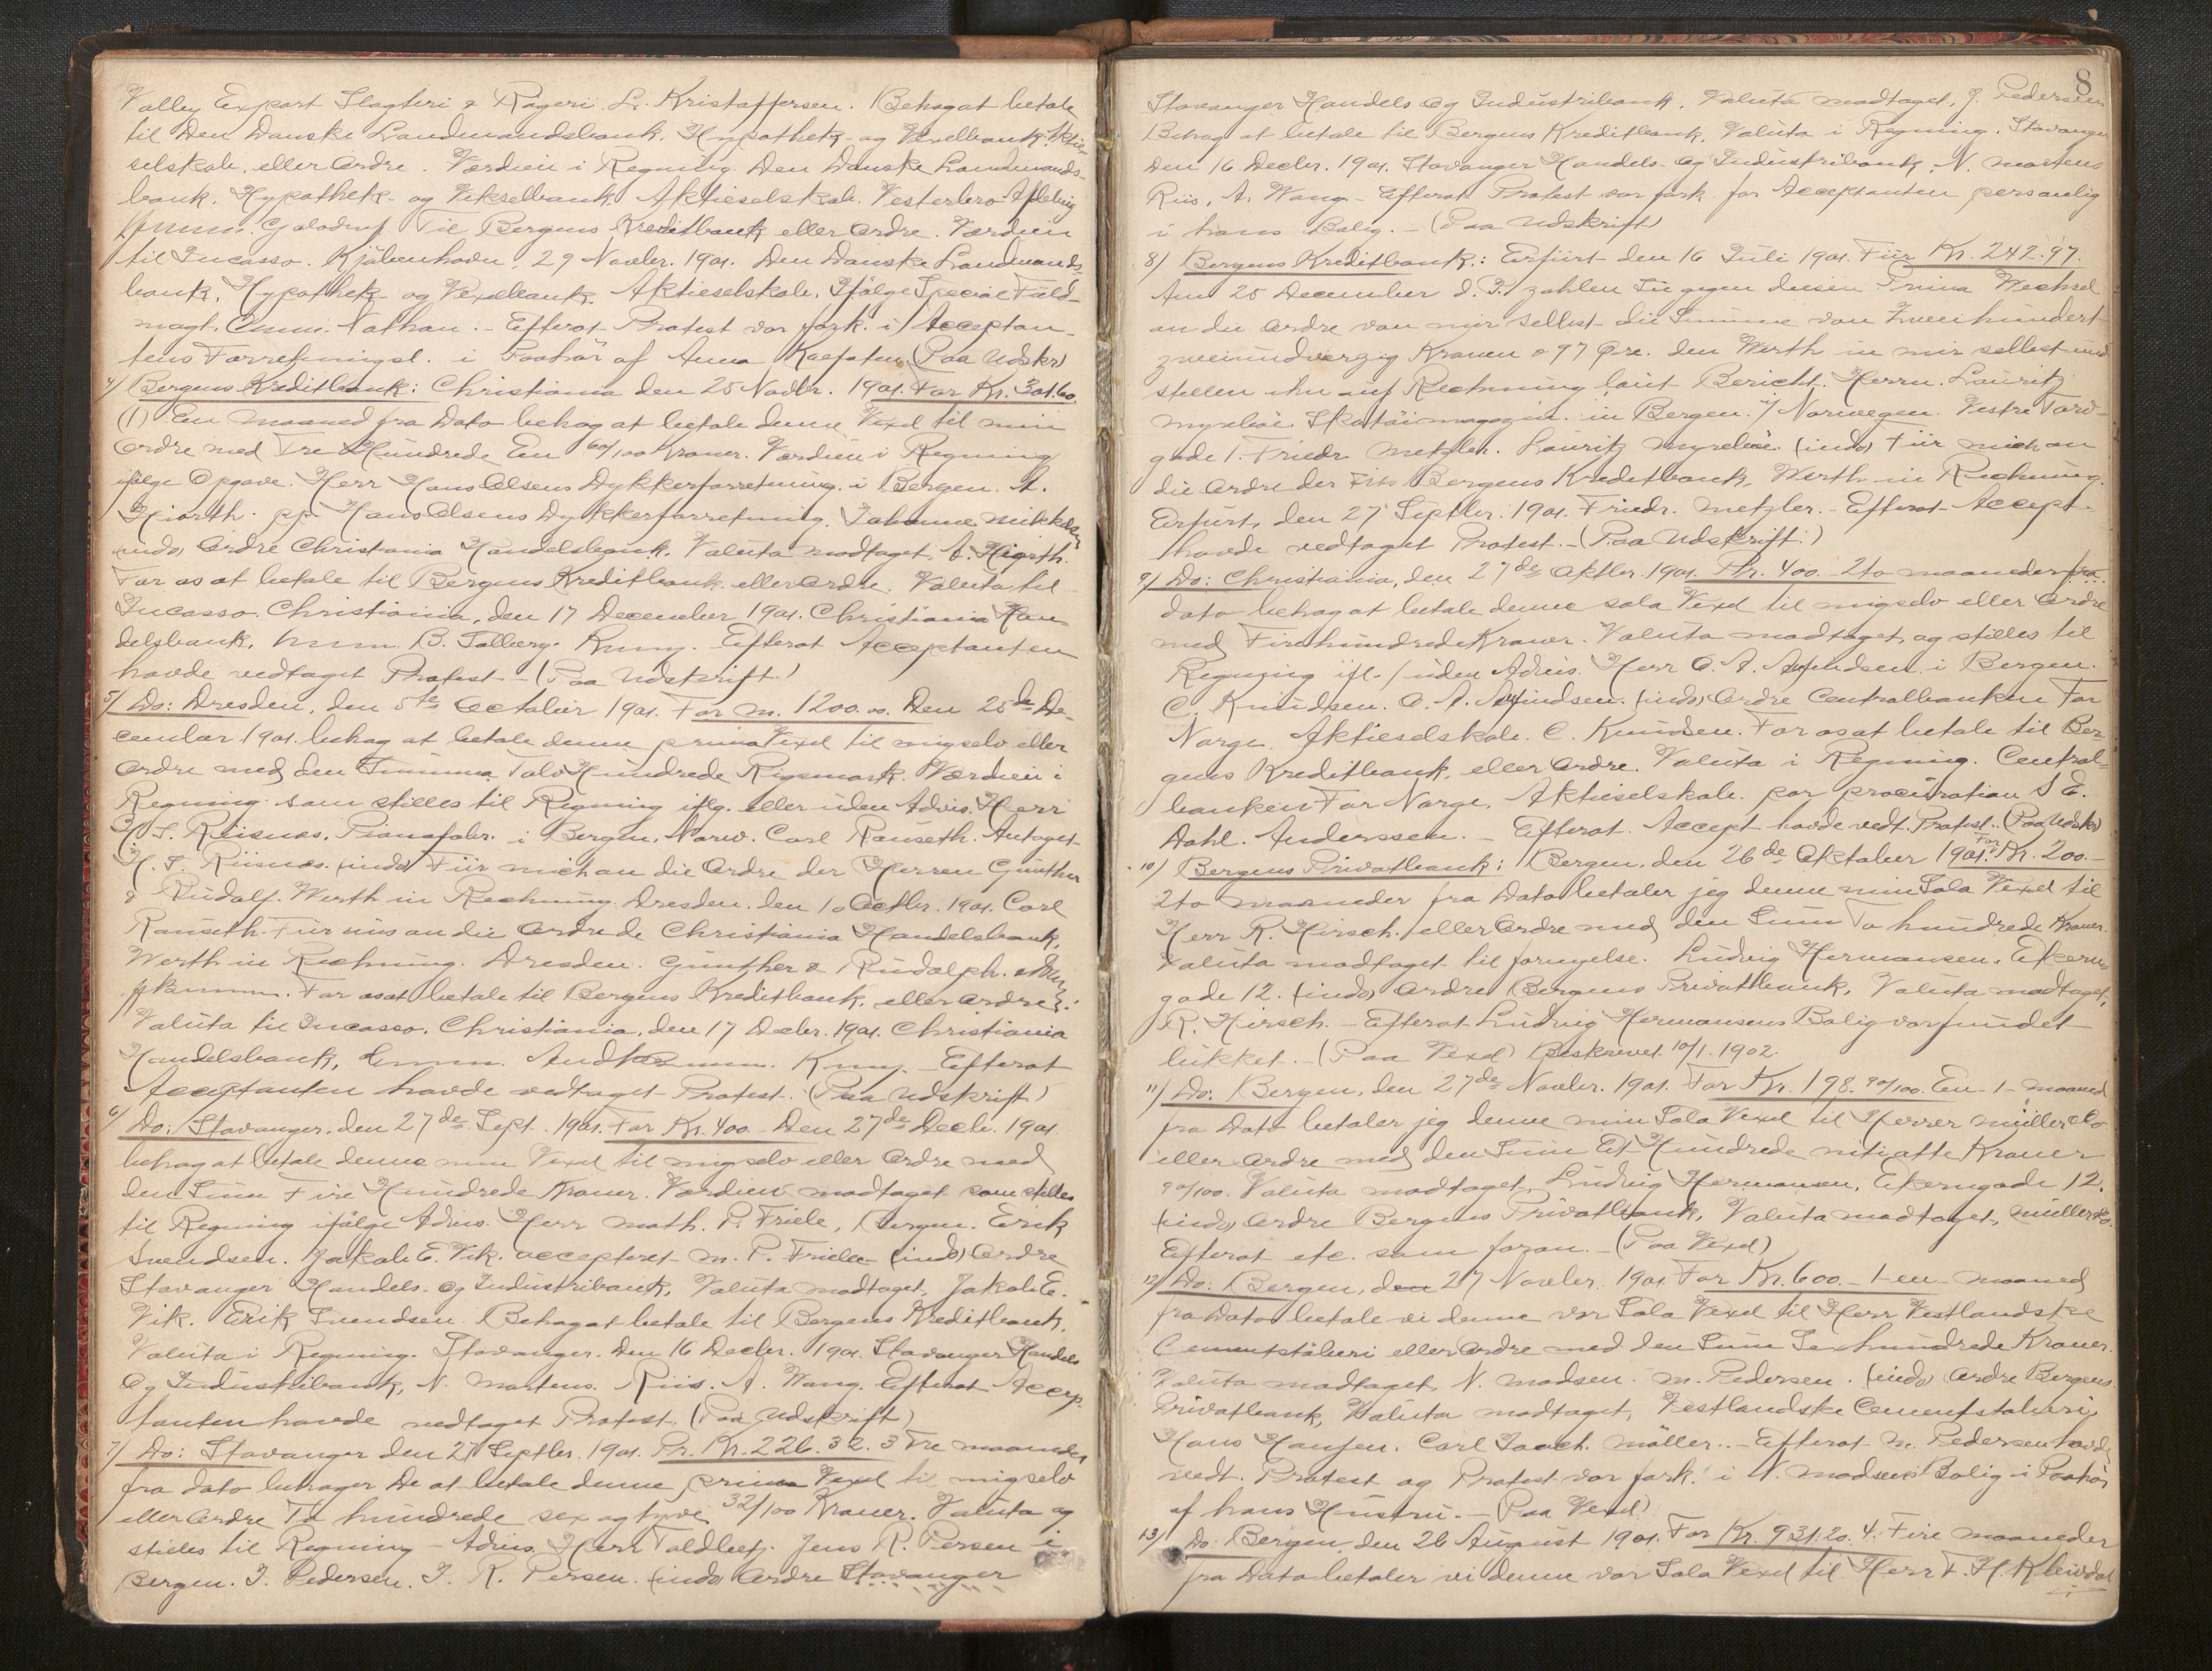 Valley Export Slagteri & Røgeri. L. Kristaffersen. Behag at betale
til Den Danske Landmandsbank, Hypothek- og Vexelbank, Aktie-
selskab, eller Ordre. Værdien i Regning. Den Danske Landmands-
bank, Hypothek- og Vekselbank, Aktieselskab. Vesterbro Afdeling
Til Bergens Kreditbank eller Ordre. Værdien
til Incasso. Kjøbenhavn, 29 Novbr. 1901. Den Danske Landmands-
bank, Hypothek- og Vexelbank. Aktieselskab. Ifølge Special Fuld-
magt. Nathan. - Efterat Protest var fork. i Acceptan-
tens Forretningsl. i Paahør af Anna (Paa Udskr)
4/ Bergens Kreditbank: Christiania den 25 Novbr. 1901. For Kr. 301.60.
(1) En Maaned fra Dato behag at betale denne Vexel til min
Ordre med Tre Hundrede En 60/100 Kroner. Værdien i Regning
ifølge Opgave. Herr Hans Olsens Dykkerforretning i Bergen. A.
Hiorth. pp. Hans Olsens Dykkerforretning. Johanne Mikkelsen
(indo) Ordre Christiania Handelsbank. Valuta modtaget. A. Hiorth.
For os at betale til Bergens Kreditbank eller Ordre. Valuta til
Incasso. Christiania, den 17 December 1901. Christiania Han
delsbank, B. Solberg. Efterat Acceptanten
havde vedtaget Protest. - (Paa Udskrift.)
5/ Do: Dresden, den 5te October 1901. For M. 1200.00. Den 25de De-
cember 1901. behag at betale denne prima Vexel til mig selv eller
Ordre med den Summa Tolv Hundrede Rigsmark. Værdien i
Regning som stilles til Regning iflg. eller uden Advis. Herr
H. S. Riisnæs, Pianofabr. i Bergen, Norw. Carl Rauseth. Antaget
H. S. Riisnæs. (indo) Für mich an die Ordre der Herren Günther
& Rudolf. Werth in Rechnung. Dresden. den 10 Octbr. 1901. Carl
Rauseth. Für uns an die Ordre de Christiania Handelsbank,
Werth in Rechnung. Dresden. Günther & Rudolph.
For os at betale til Bergens Kreditbank, eller Ordre.
Valuta til Incasso. Christiania, den 17 Decbr. 1901. Christiania
Handelsbank, Efterat
Acceptanten havde vedtaget Protest. (Paa Udskrift)
6/ Do: Stavanger, den 27de Sept. 1901. For Kr. 400 - Den 27de Decb. 1901
behag at betale denne min Vexel til mig selv eller Ordre med
den Sum Fire Hundrede Kroner. Værdien modtaget som stilles
til Regning ifølge Advis. Herr Math. P. Friele, Bergen. Erik
Svendsen. Jakob E. Vik. accepteret M. P. Friele (indo) Ordre
Stavanger Handels- og Industribank, Valuta modtaget, Jakob E.
Vik. Erik Svendsen. Behag at betale til Bergens Kreditbank.
Valuta i Regning. Stavanger. Den 16 Decbr. 1901. Stavanger Handels
Og Industribank, N. Martens. Riis. A. Wang. Efterat Accep
tanten havde vedtaget Protest. (Paa Udskrift)
7/ Do: Stavanger den 27 Septbr. 1901. Pr. Kr. 226.32. 3 Tre maaneder
fra dato behager De at betale denne prima Vexel til mig selv
eller Ordre To hundrede sex og tyve 32/100 Kroner. Valuta og
stilles til Regning - Advis. Herr Toldbetj. Jens R. Persen i
Bergen. J. Pedersen. J. R. Persen. (indo) Ordre Stavanger
8
Stavanger Handels og Industribank. Valuta modtaget, J. Pedersen
Behag at betale til Bergens Kreditbank, Valuta i Regning. Stavanger
den 16 Decbr. 1901. Stavanger Handels- Og Industribank, N. Martens
Riis, A. Wang. - Efterat Protest var fork. for Acceptanten personlig
i hans Bolig. - (Paa Udskrift)
8/ Bergens Kreditbank: Erfurt den 16 Juli 1901. Für Kr. 242.97.
Am 25 December d. J. zahlen Sie gegen diesen Prima Wechsel
an die Ordre von mir selbst die Summe von Zweihundert
zweiundvierzig Kronen & 97 Øre. den Werth in mir selbst und
stellen ihn auf Rechnung laut Bericht. Herrn. Lauritz
Myrebøe Skotøimagazin. in Bergen. i/ Norwegen. Vestre Torv-
gade 1. Friedr. Metzler. Lauritz Myrebøe. (indo) Für mich an
die Ordre der Bergens Kreditbank, Werth in Rechnung.
Erfurt, den 27 Septbr. 1901. Friedr. Metzler. - Efterat Accept.
havde vedtaget Protest. - (Paa Udskrift.)
9/ Do: Christiania, den 27de Oktbr. 1901. Pr. 400 - 2to maaneder fra
dato behag at betale denne sola Vexel til mig selv eller Ordre
med Firehundrede Kroner. Valuta modtaget, og stilles til
Regning ifl./uden Advis. Herr O. A. Amundsen i Bergen.
C. Knudsen. O. A. Amundsen. (indo) Ordre Centralbanken For
Norge. Aktieselskab. C. Knudsen. For os at betale til Ber
gens Kreditbank, eller Ordre. Valuta i Regning. Central-
banken For Norge, Aktieselskab. par procuration S E.
Dahl. Anderssen. - Efterat Accept havde vedt. Protest. (Paa Udskr)
10/ Bergens Privatbank: Bergen, den 26de Oktober 1901. For Kr. 200.-
2to maaneder fra Dato betaler jeg denne min Sola Vexel til
Herr R. Hirsch. eller Ordre med den Sum To hundrede Kroner.
Valuta modtaget til fornyelse. Ludvig Hermansen. Ekeren-
gade 12. (indo) Ordre Bergens Privatbank, Valuta modtaget,
R. Hirsch. - Efterat Ludvig Hermansens Bolig var fundet
lukket. - (Paa Vexel) Beskrevet 10/1. 1902.
11/ Do: Bergen, den 27de Novbr. 1901. For Kr. 198. 90/100. En - 1 - maaned
fra Dato betaler jeg denne min Sola Vexel til Herrer Müller & Co
eller Ordre med den Sum Et Hundrede nitiatte Kroner
90/100. Valuta modtaget, Ludvig Hermansen, Ekerengade 12.
(indo) Ordre Bergens Privatbank, Valuta modtaget, Müller & Co.
Efterat etc. som foran. - (Paa Vexel)
12/ Do: Bergen, den 27 Novbr. 1901. For Kr. 600. - 1 - en - maaned
fra Dato betale vi denne vor Sola Vexel til Herr Vestlandske
Cementstøberi eller Ordre med den Sum Sex hundrede Kroner.
Valuta modtaget, N. Madsen. M. Pedersen. (indo) Ordre Bergens
Privatbank, Valuta modtaget, Vestlandske Cementstøberi,
Hans Hansen. Carl Joach. Møller. - Efterat M. Pedersen havde
vedt. Protest og Protest var fork. i N. Madsens Bolig i Paahør
af hans Hustru. - (Paa Vexel)
13/ Do: Bergen, den 26 August 1901. For Kr. 931.20. 4. Fire maaneder
fra Dato betaler vi denne vor Sola Vexel til Herr F. H. Kleivdal